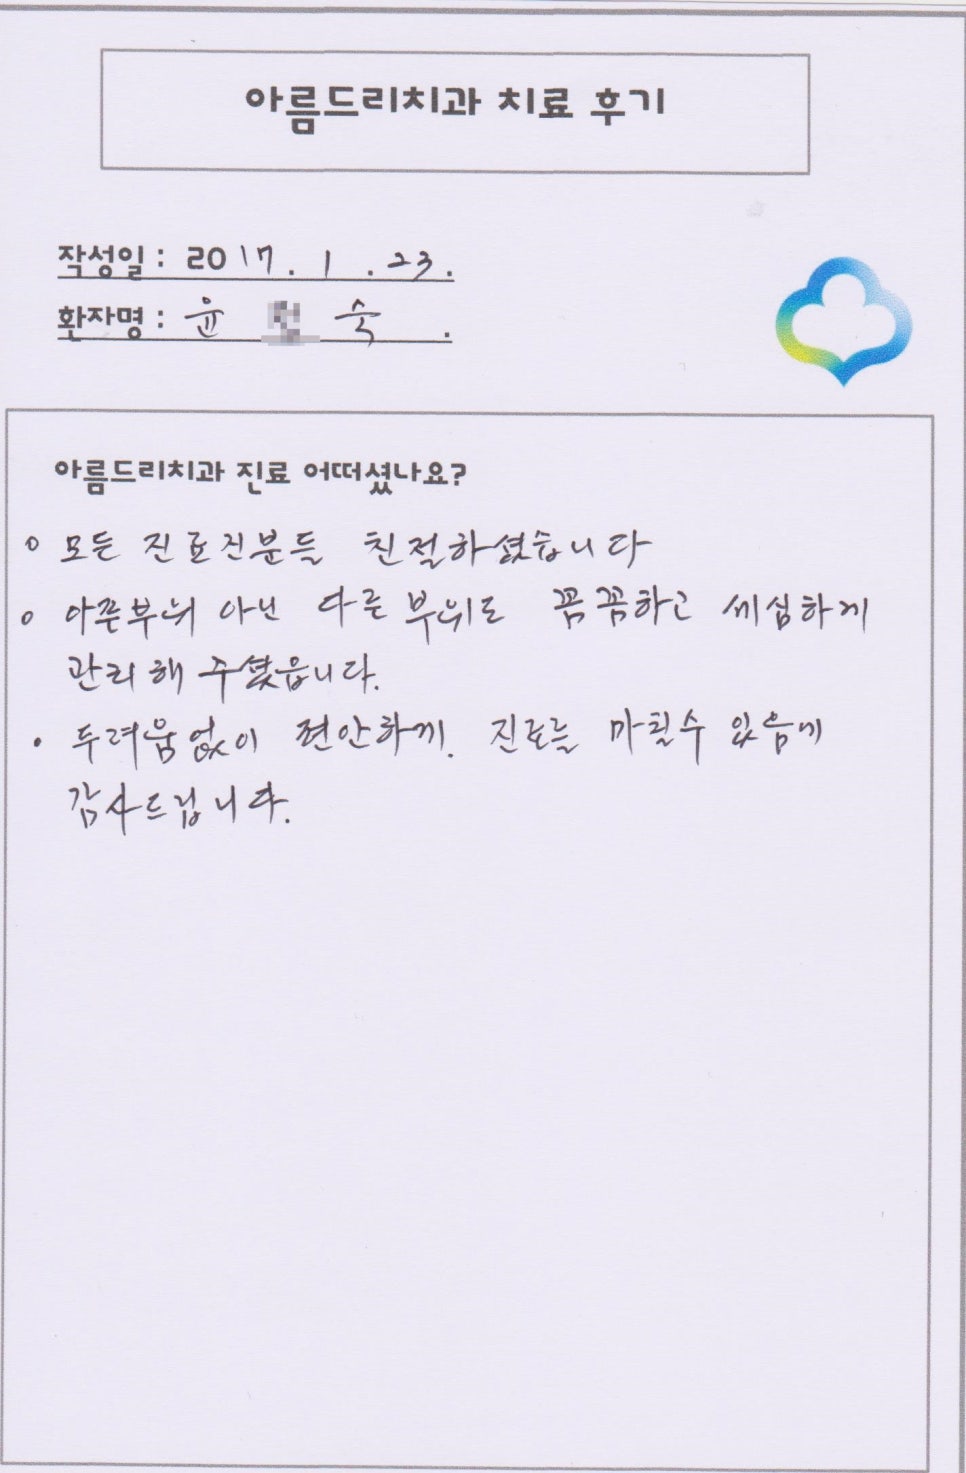 아름드리치과 치료 후기
작성일 : 2017 . 1 . 23 .
환자명 : 윤 숙 .
아름드리치과 진료 어떠셨나요?
o 모든 진료진분들 친절하셨습니다
o 아픈부위 아닌 다른 부위도 꼼꼼하고 세심하게
관리해 주셨읍니다.
• 두려움없이 편안하게. 진료를 마칠수 있음에
감사드립니다.